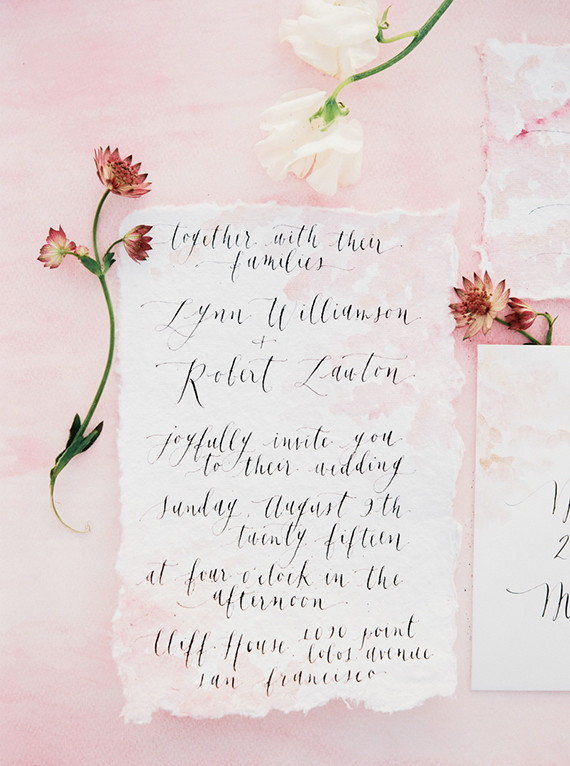 together with their
families
Lynn Williamson
+
Robert Lawton
joyfully invite you
to their wedding
Sunday, August 9th
twenty fifteen
at four o'clock in the
afternoon
Cliff House 1090 point
lobos avenue
san francisco